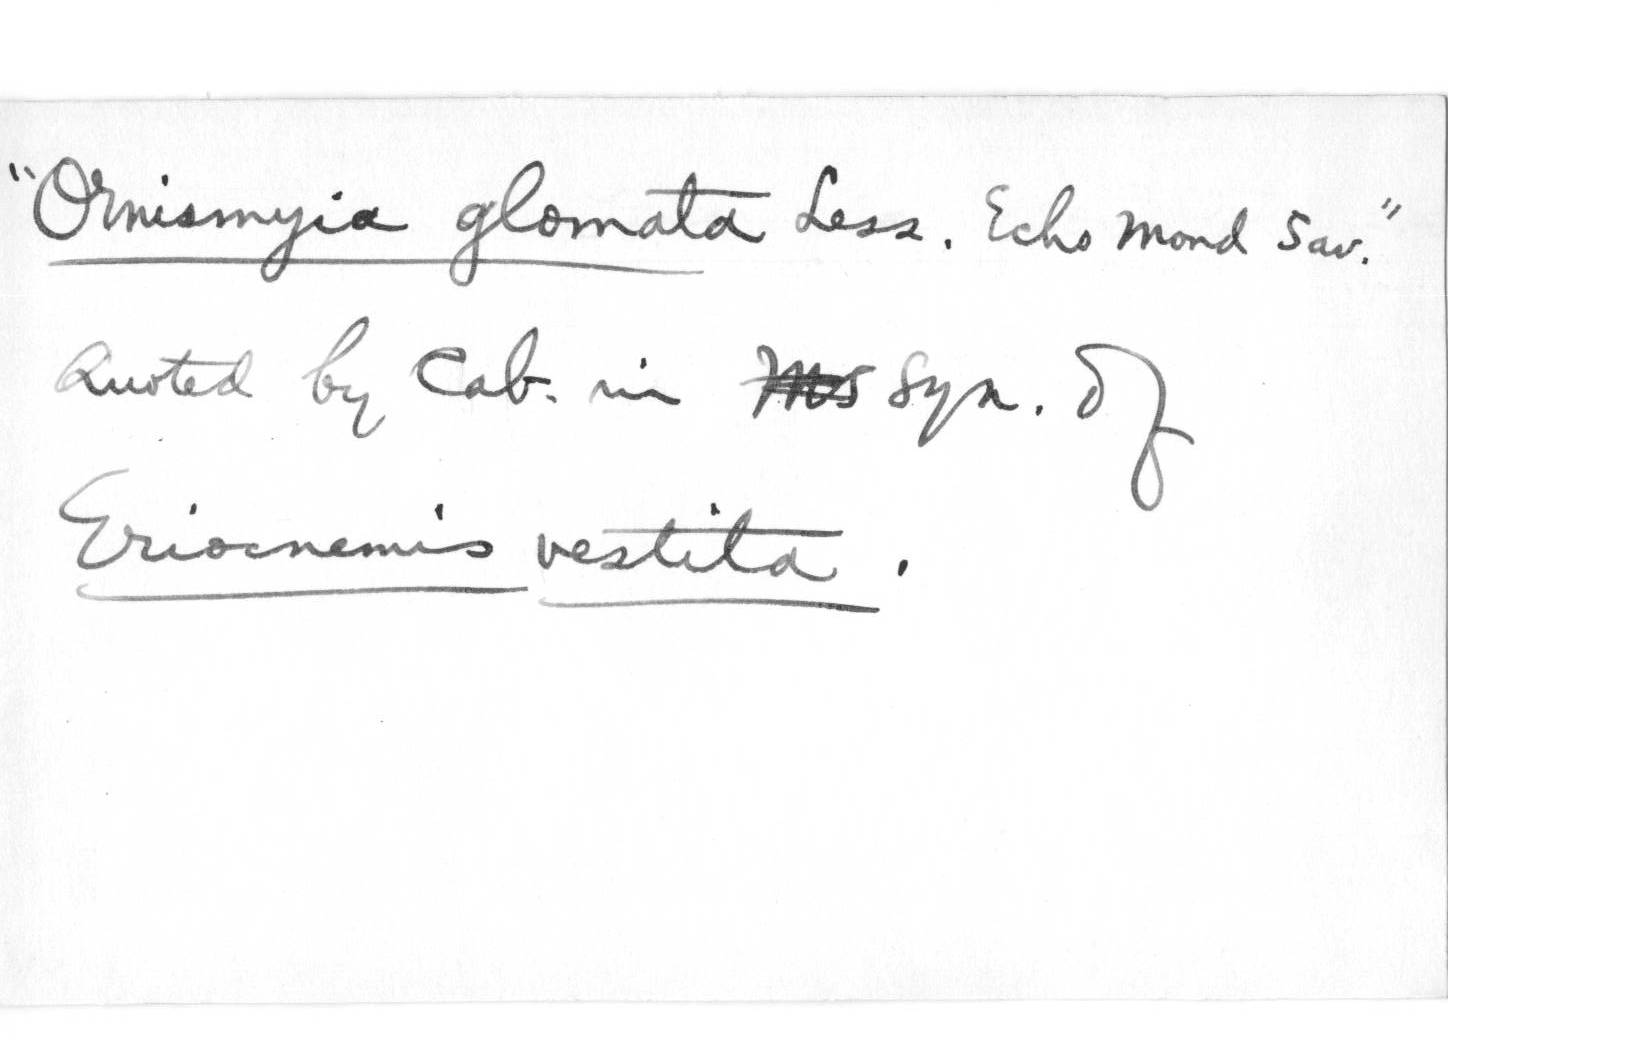 "Ornismyia glomata Less. Echo Mond Sav."
Quoted by Cab. in Syn. of
Eriocnemis vestita.